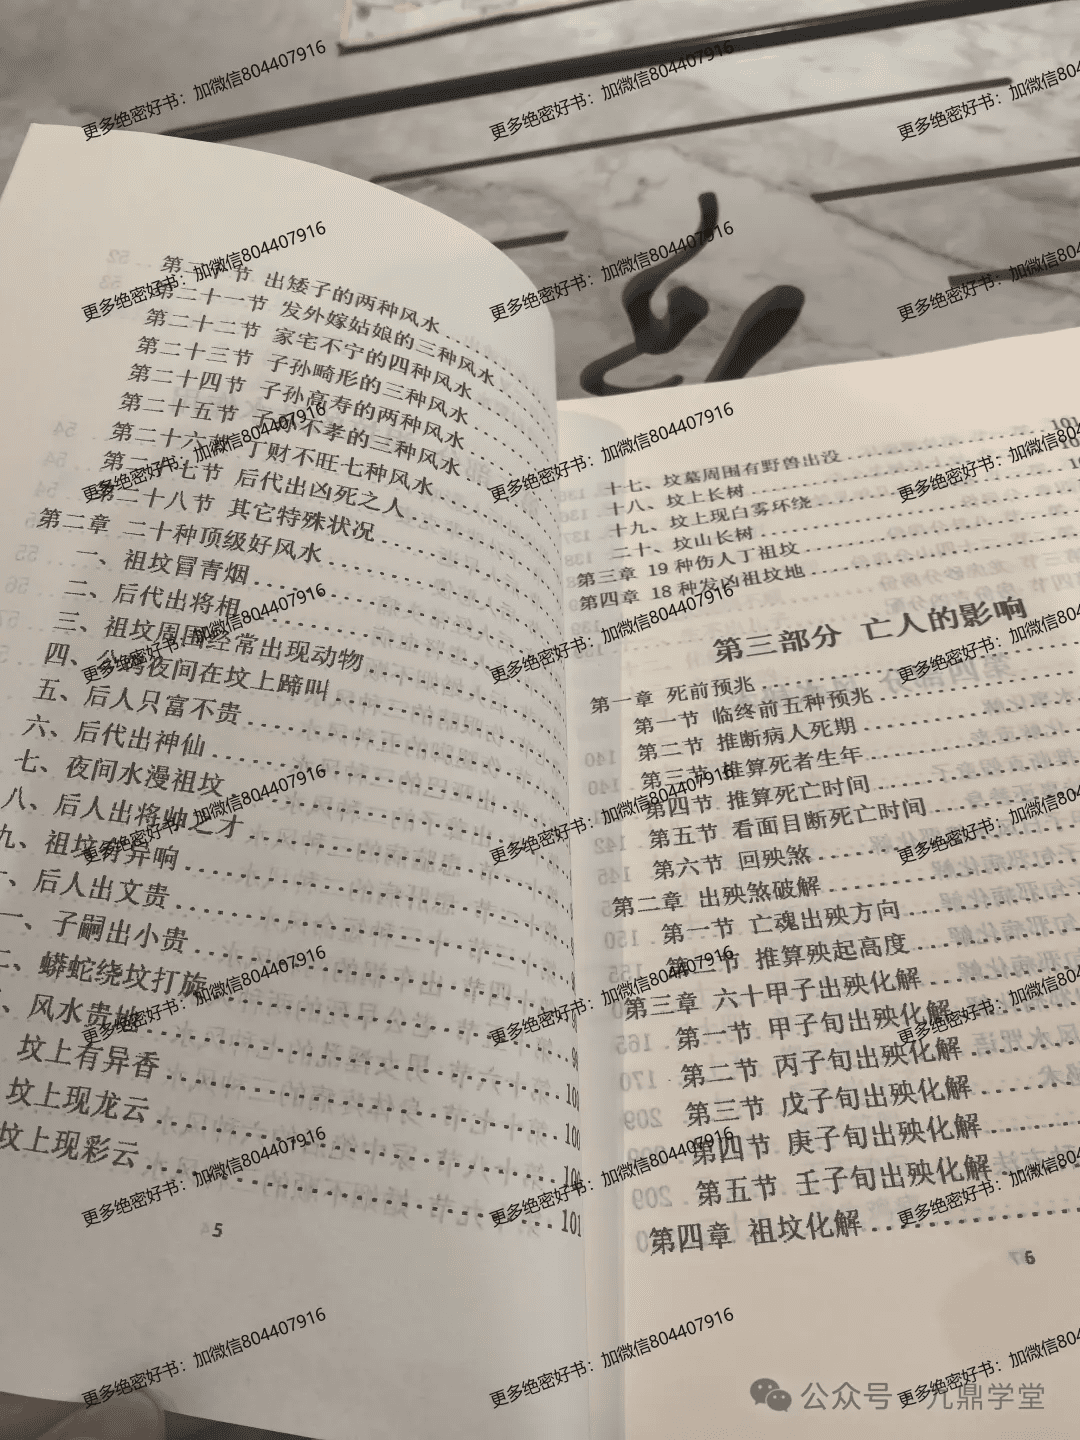 第二十节 出矮子的两种风水
第二十一节 发外嫁姑娘的三种风水
第二十二节 家宅不宁的四种风水
第二十三节 子孙畸形的三种风水
第二十四节 子孙高寿的两种风水
第二十五节 子孙不孝的三种风水
第二十六节 丁财不旺七种风水
第二十七节 后代出凶死之人
第二十八节 其它特殊状况
第二章 二十种顶级好风水
一、祖坟冒青烟
二、后代出将相
三、祖坟周围经常出现动物
四、公鸡夜间在坟上蹄叫
五、后人只富不贵
六、后代出神仙
七、夜间水漫祖坟
八、后人出将帅之才
九、祖坟有异响
、后人出文贵
一、子嗣出小贵
二、蟒蛇绕坟打旋
、风水贵地
坟上有异香 101
坟上现龙云 100
坟上现彩云 101
5
十七、坟墓周围有野兽出没 101
十八、坟上长树
十九、坟上现白雾环绕
二十、坟山长树
第三章 19种伤人丁祖坟
第四章 18种发凶祖坟地
第三部分 亡人的影响
第一章 死前预兆
第一节 临终前五种预兆
第二节 推断病人死期
第三节 推算死者生年
第四节 推算死亡时间
第五节 看面目断死亡时间
第六节 回殃煞
第二章 出殃煞破解
第一节 亡魂出殃方向
第二节 推算殃起高度
第三章 六十甲子出殃化解
第一节 甲子旬出殃化解
第二节 丙子旬出殃化解
第三节 戊子旬出殃化解
第四节 庚子旬出殃化解
第五节 壬子旬出殃化解
第四章 祖坟化解
6
更多绝密好书：加微信804407916
公众号 九鼎学堂